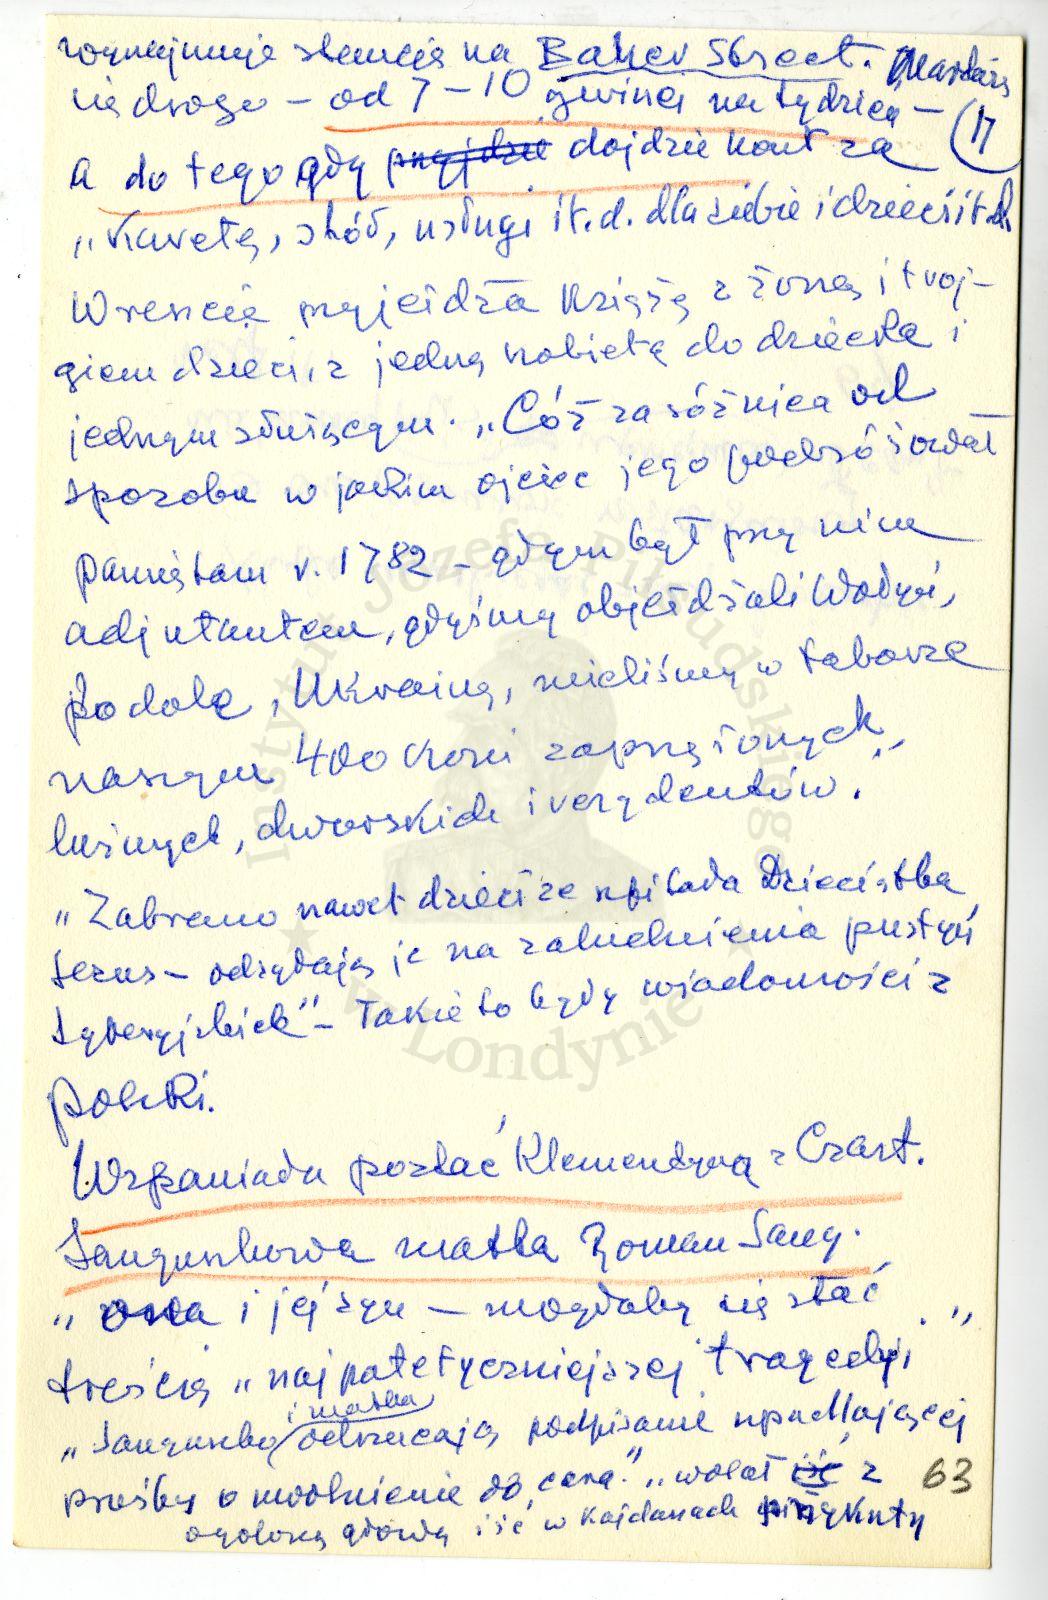 wynajmuje stancję na Baker Street. Martwią
się drogo – od 7–10 gwinei na tydzień –
(17
a do tego gdy przyjdzie dojdzie koszt za
„karetę, stół, usługi i t. d. dla siebie i dzieci i t. d.
Wreszcie przyjeżdża Książę z żoną i troj-
giem dzieci, z jedną kobietą do dziecka i
jednym służącym. „Cóż za różnica od
sposobu w jakim ojciec jego podróżował
pamiętam r. 1782 – gdym był przy nim
adjutantem, gdyśmy objeżdżali Wołyń,
Podole, Ukrainę, mieliśmy w taborze
naszym 400 koni zaprzężonych,
luźnych, dworskich i rezydentów."
„Zabrano nawet dzieci ze szpitala Dzieciątka
Jezus – odsyłają je na zaludnienia pustyń
syberyjskich" – Takie to były wiadomości z
Polski.
Wspaniała postać Klementyną z Czart.
Sanguszkowa matka Roman Sang.
„ona i jej syn – mogłaby się stać
treścią „najpatetyczniejszej tragedyi"
„Sanguszko i matka odrzucają podpisanie upadlającej
prośby o uwolnienie do cara." „wolał iść z
63
ogoloną głową iść w kajdanach przykuty
Instytut Józefa Piłsudskiego
w Londynie